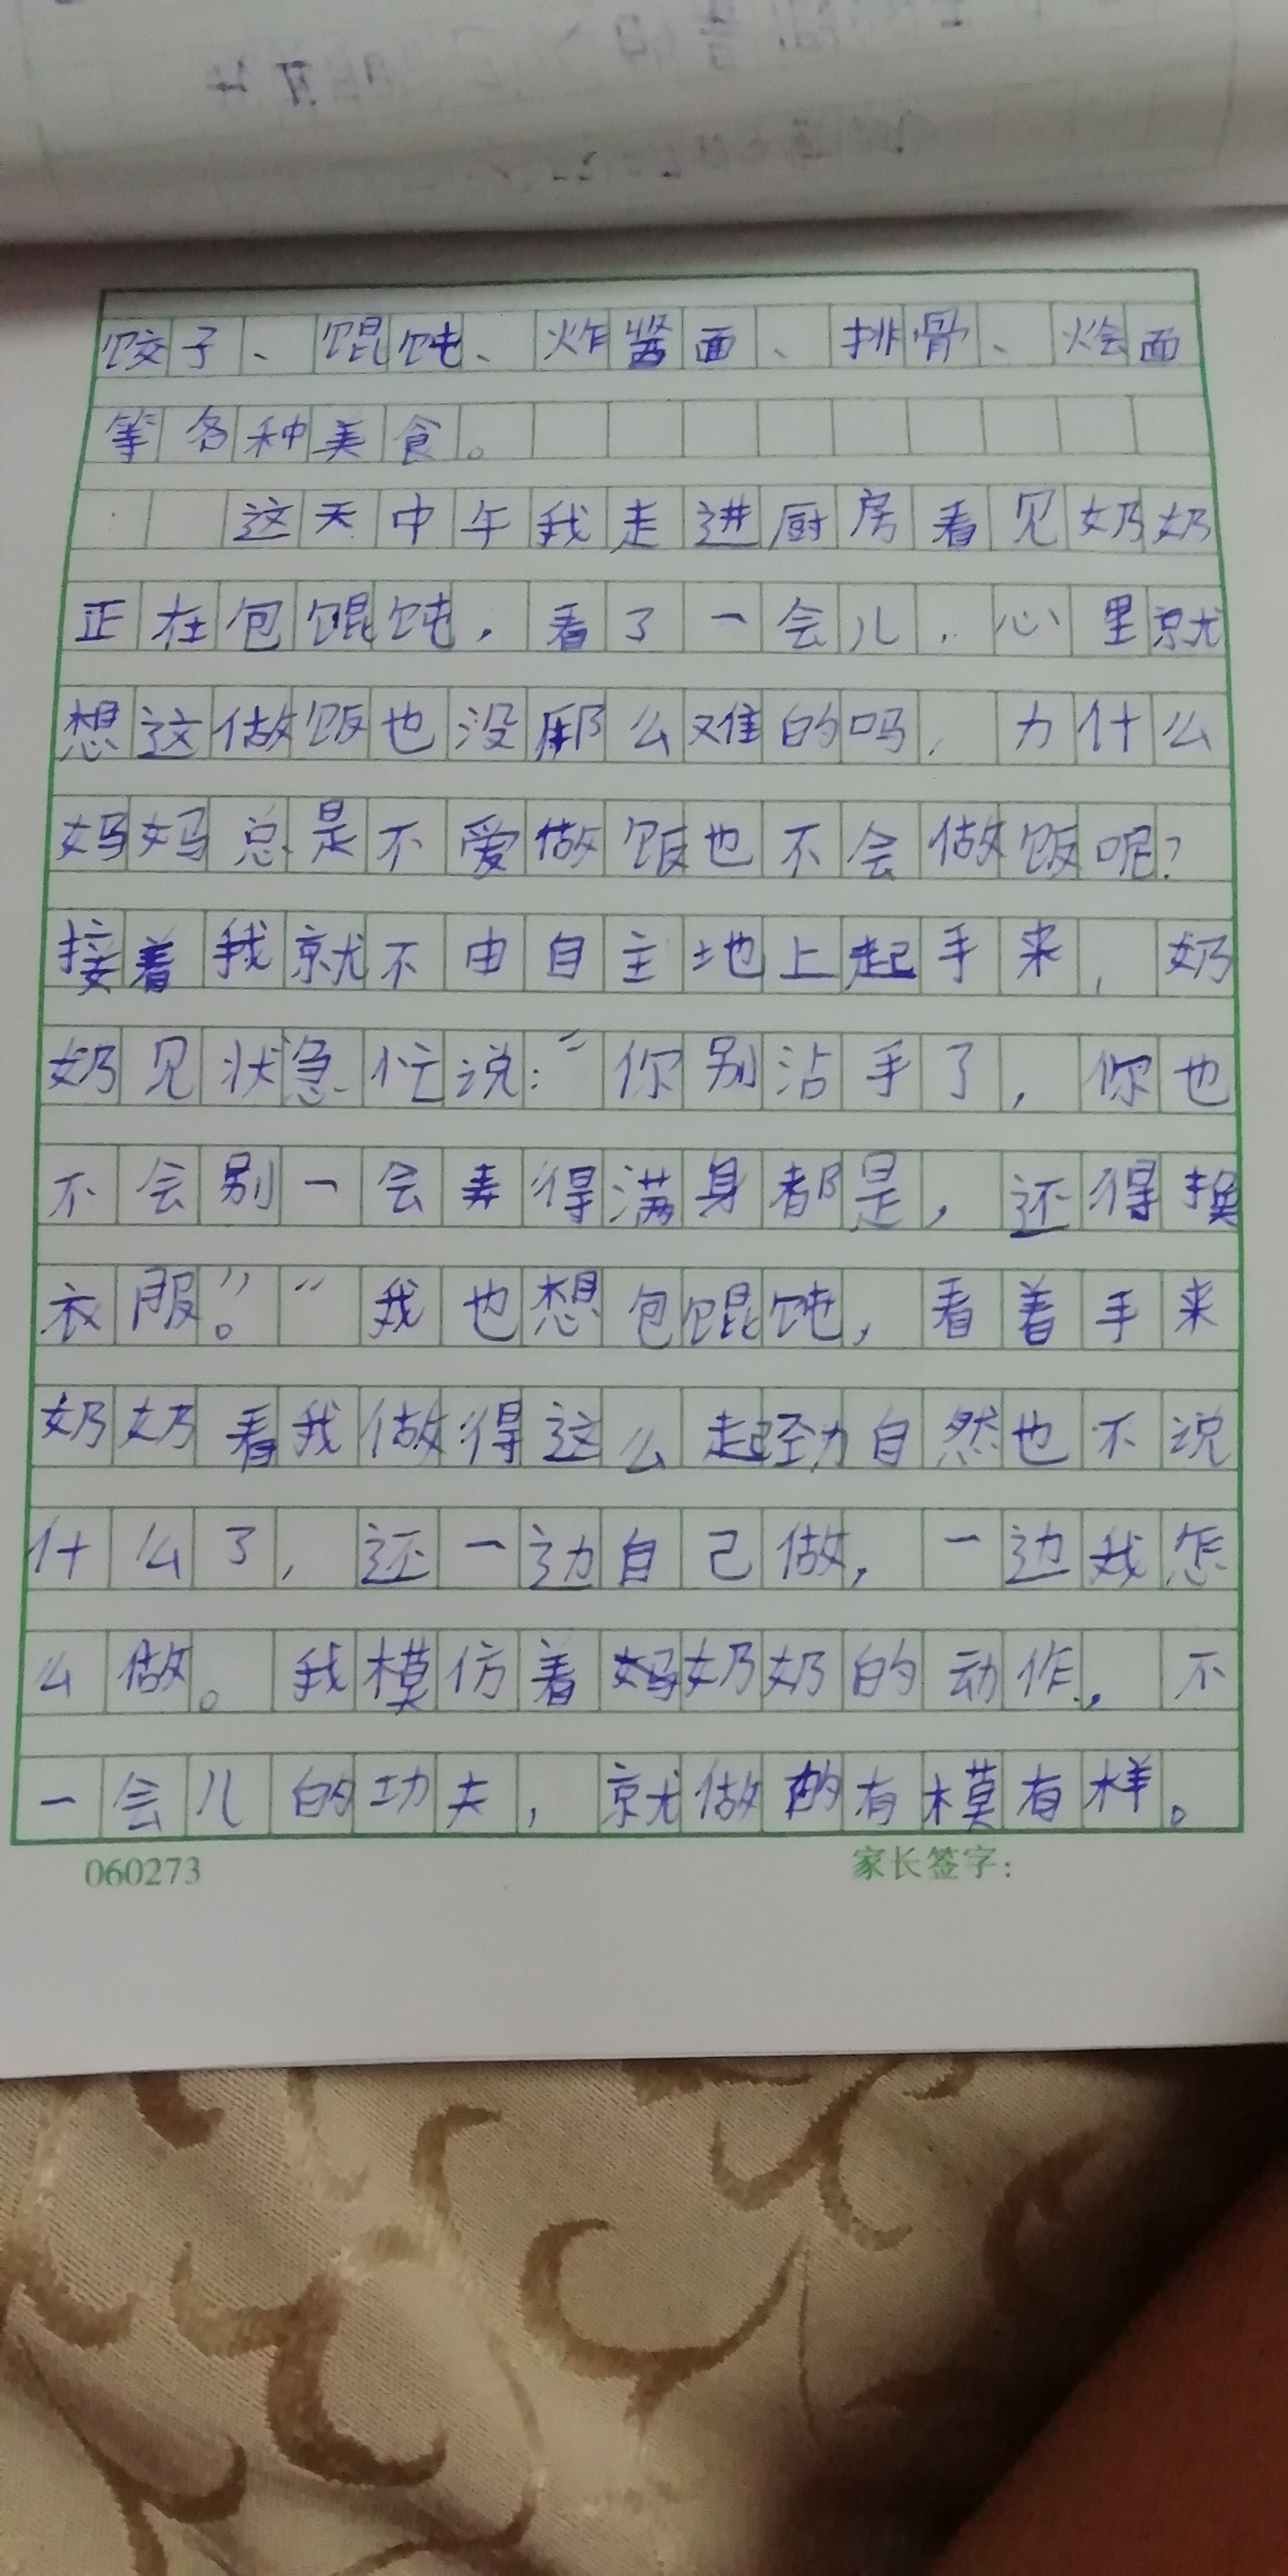 饺子、馄饨、炸酱面、排骨、烩面
等各种美食。
这天中午我走进厨房看见奶奶
正在包馄饨,看了一会儿,心里就
想这做饭也没那么难的吗,力什么
妈妈总是不爱做饭也不会做饭呢?
接着我就不由自主地上起手来,奶
奶见状急忙说:“你别沾手了,你也
不会别一会弄得满身都是,还得换
衣服。”“我也想包馄饨,看着手来
奶奶看我做得这么起劲自然也不说
什么了,还一边自己做,一边我怎
么做。我模仿着奶奶的动作,不
一会儿的功夫,就做的有模有样。
060273
家长签字: